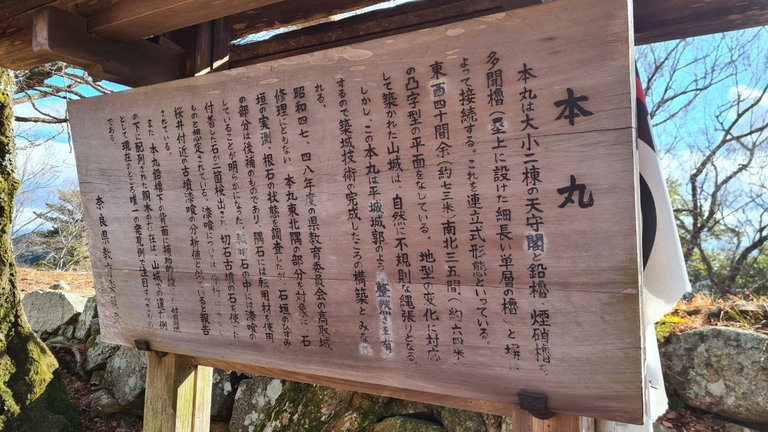 本丸
本丸は大小二棟の天守閣と鉛櫓、煙硝櫓を、
多聞櫓(塁上に設けた細長い単層の櫓)と塀に
よって接続する。これを連立式形態といっている。
東西四十間余(約七三米)南北三五間(約六四米)
の凸字型の平面をなしている。地型の変化に対応
して築かれた山城は、自然に不規則な縄張りとなる。
しかし、この本丸は平城城郭のよう整然さを有
するので築城技術の完成したころの構築とみな
れる。
昭和四七、四八年度の県教育委員会の高取城
修理にともない、本丸東北隅の部分を対象に、石
垣の実測、根石の状態を調査したが、石垣のひずみ
の部分は後補のものであり、隅石には転用材を使用
していることが明らかになった。転用石の中には漆喰の
付着した石が三箇検出され、切石古墳の石を使った
ものと想定されている。漆喰については
桜井付近の古墳漆喰の分析値と似ていると報告
されている。
また、本丸鉛櫓下の背面に補助的
の下に配列された胴木の存在は、山城での遺構例
として現在のところ唯一の発見例で注目すべきもの
である。
奈良県教育委員会